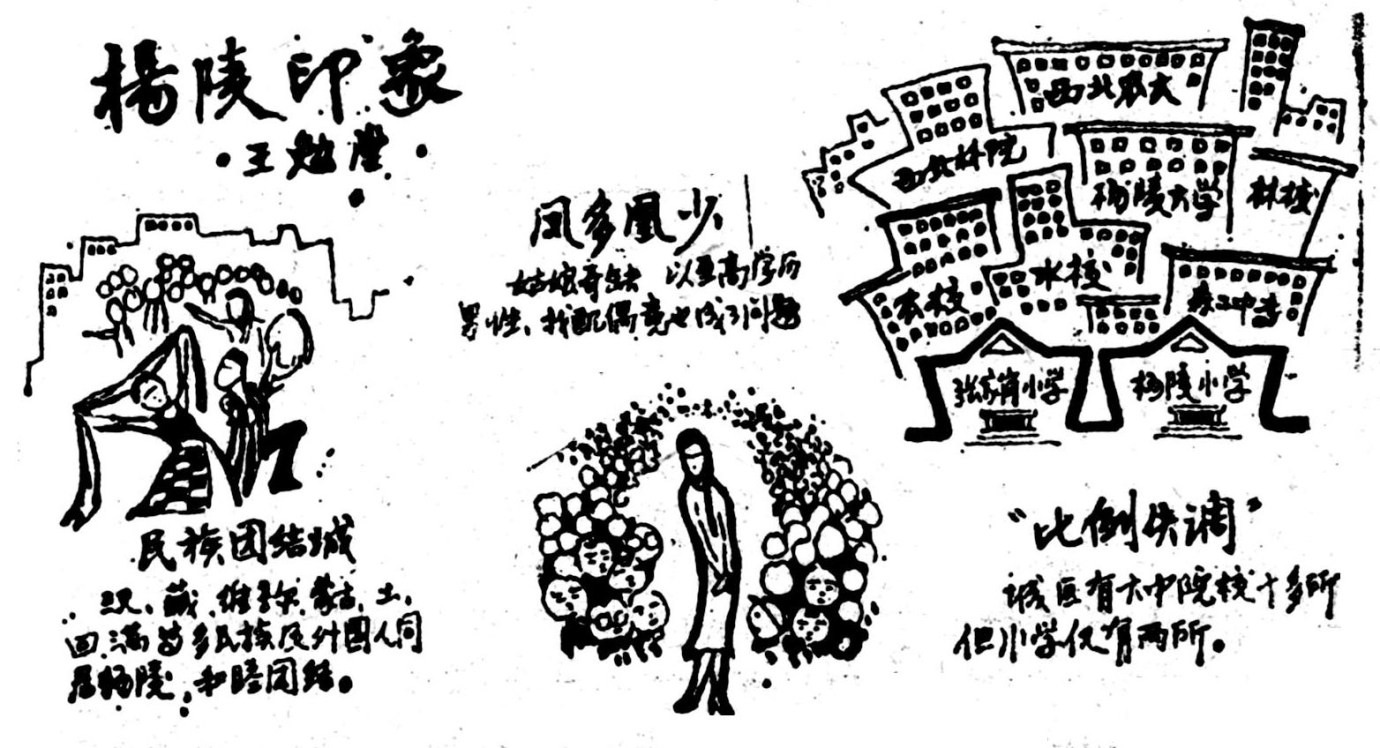 楊陵印象
·王勉
民族团结城
汉、藏、维吾尔、蒙古、土、
回、满等多民族及外国人同
居杨陵,和睦团结。
凤多凰少
姑娘奇缺 以至高学历
男性、找配偶竟也成了问题
西北农大
西北林院
杨陵大学
林校
农校
水校
张家岗小学
杨陵小学
“比例失调”
城区有大中院校十多所
但小学仅有两所。